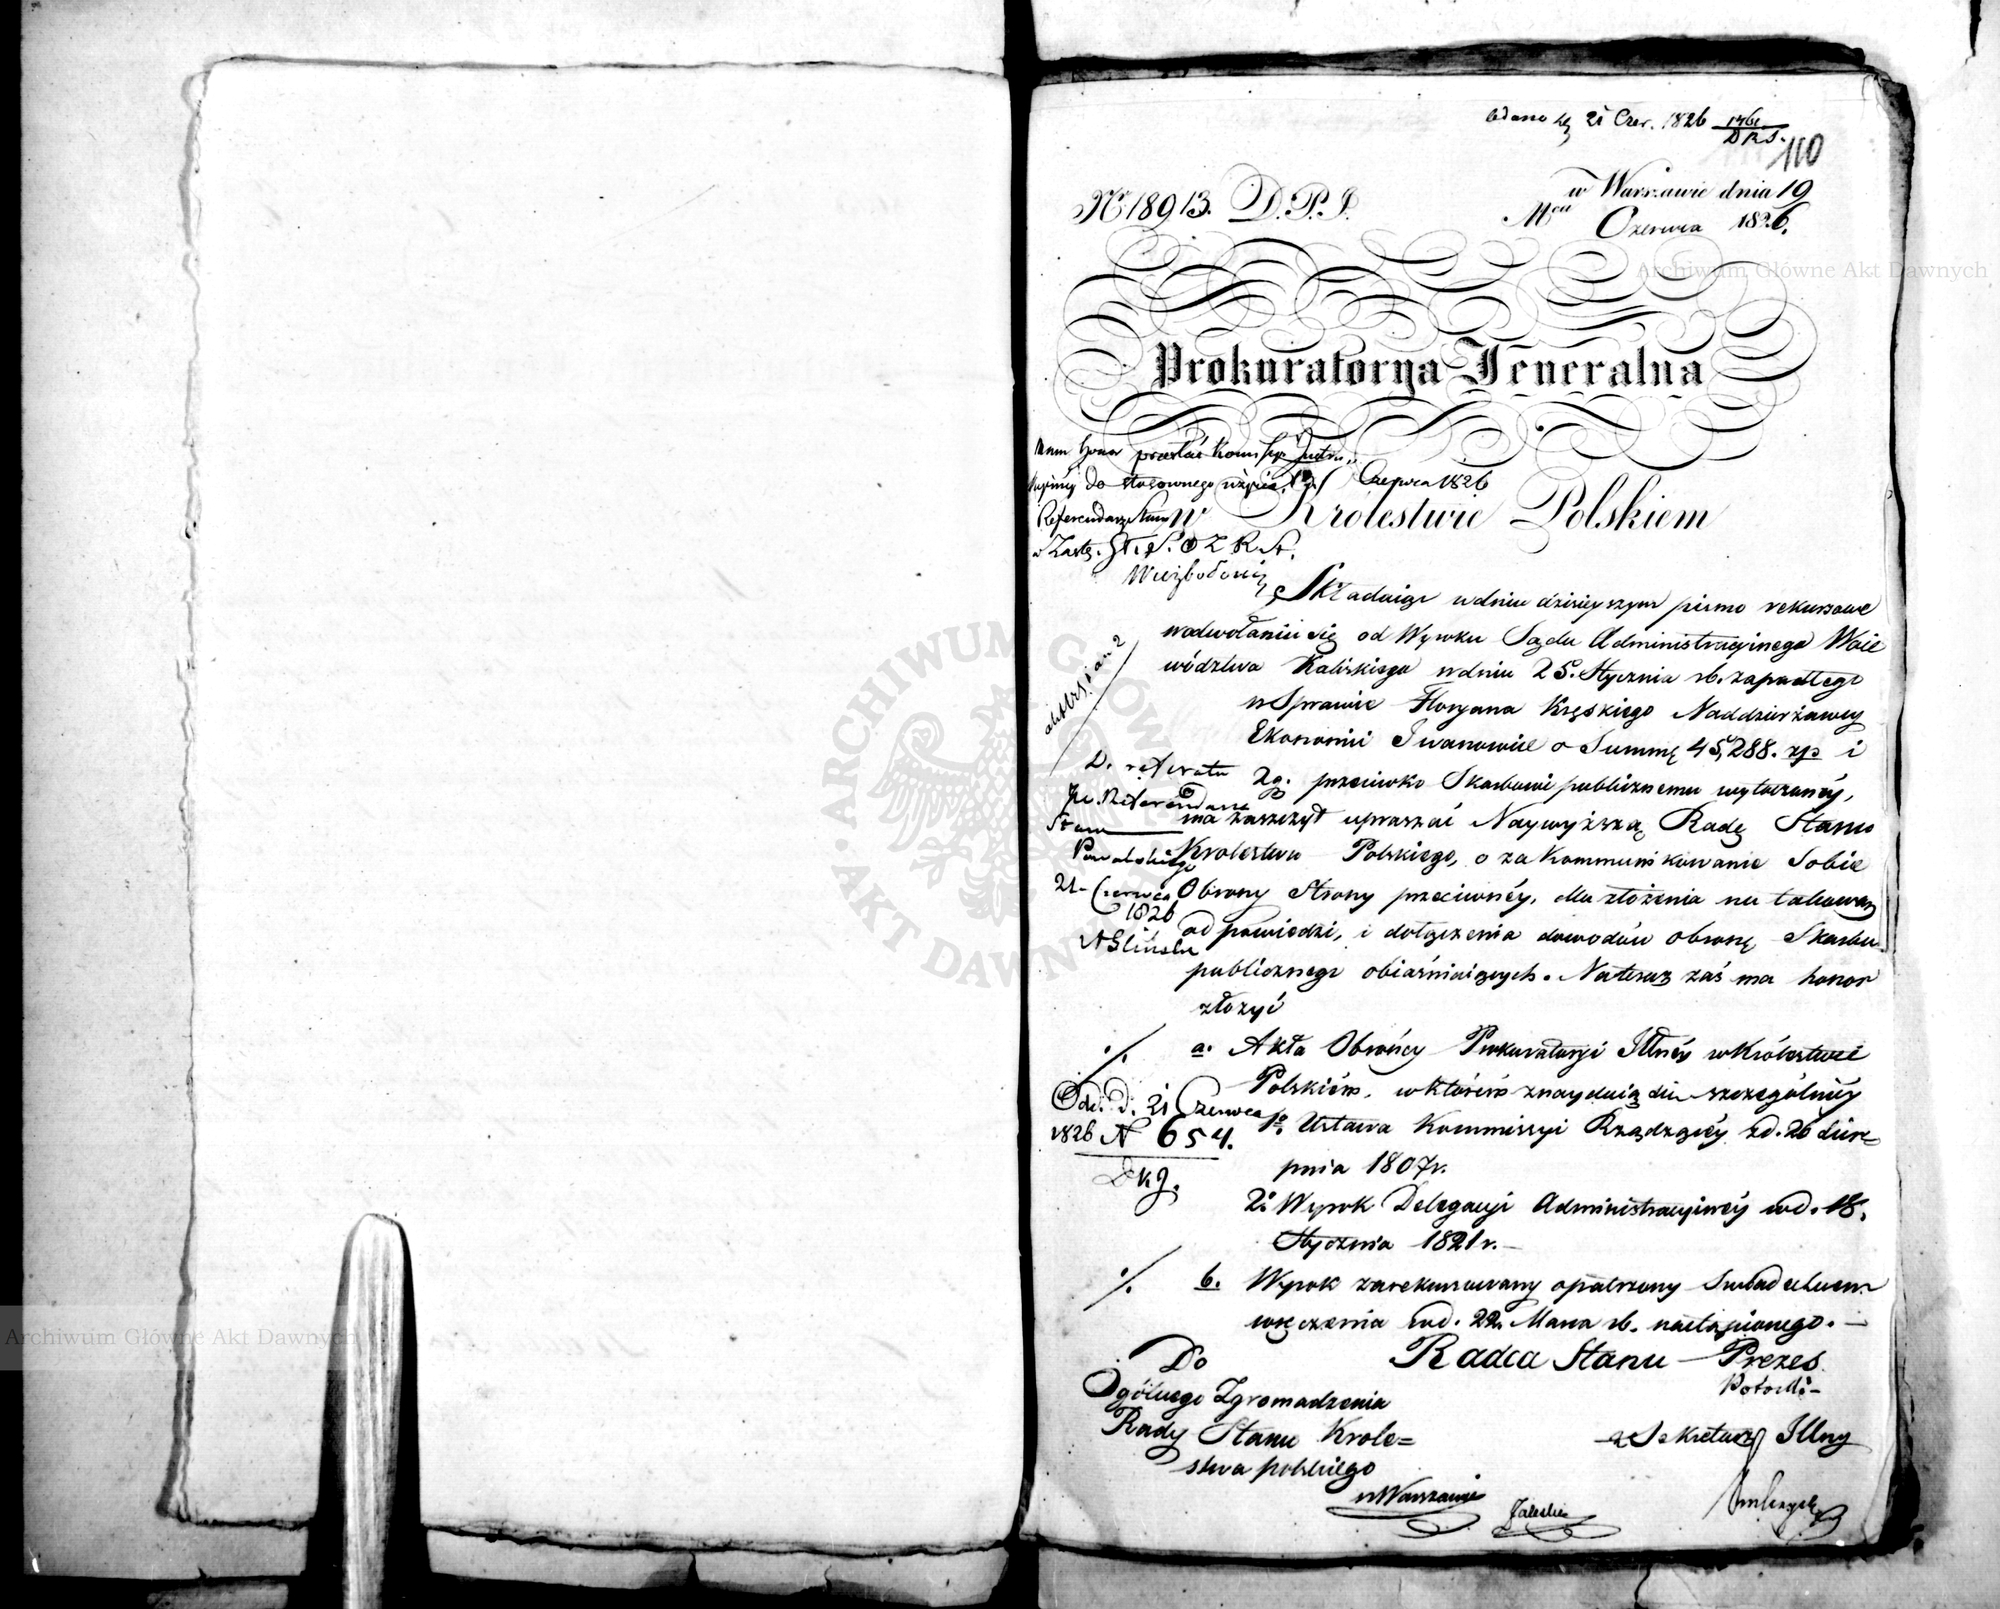 Odano d. 21 Czer. 1826 1461
D R S.
110
N 18913. D. P. J.
w Warszawie dnia 19
Mca Czerwca 1826.
Archiwum Główne Akt Dawnych
Prokuratorya Jeneralna
Mam honor przesłać
do stosownego Czerwca 1826
Referendarz Stanu
w Zast.
W Krolestwie Polskiem
Składaiąc w dniu dzisieyszym pismo rekursowe
w odwołaniu się od Wyroku Sądu Administracyinego Woie
wództwa Kaliskiego w dniu 25. Stycznia rb. zapadłego
w Sprawie Floryana Kręskiego Naddzierżawcy
Ekonomii Iwanowice o Summę 45,288. zp i
2 g. przeciwko Skarbowi publicznemu wytoczonéy,
ma zaszczyt upraszać Naywyższą Radę Stanu
Krolestwa Polskiego, o zakommunikowanie Sobie
Obrony Strony przeciwnéy, dla złożenia na takową
odpowiedzi, i dołączenia dowodów obronę Skarbu
publicznego obiaśniaiących. Nateraz zaś ma honor
złożyć
D. referatu
Referendarz
Stanu
21 Czerwca
1826
ARCHIWUM GŁÓWNE
AKT DAWNYCH
a. Akta Obrońcy Prokuratoryi Jlnéy w Królestwie
Polskiém, w którém znayduią się szczególniéy
1o. Ustawa Kommissyi Rządzącéy z d. 26 Sier=
pnia 1807 r.
2o. Wyrok Delegacyi Administracyinéy z d. 18.
Stycznia 1821 r.
Ode. d. 21 Czerwca
1826 N 654.
b. Wyrok zarekursowany opatrzony Swiadectwem
wręczenia w d. 22. Marca rb. nastąpionego.
Radca Stanu Prezes
Potocki
Do
Ogólnego Zgromadzenia
Rady Stanu Krole=
stwa polskiego
w Warszawie
Sekretarz Jlny
Zaleski
Archiwum Główne Akt Dawnych